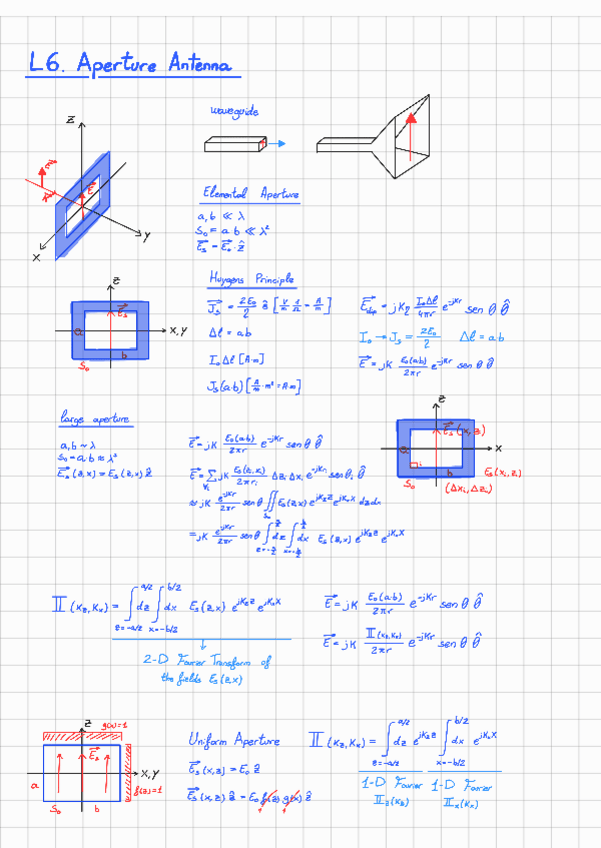 L6. Aperture Antenna
waveguide
z
y
x
Elemental Aperture
a, b ≪ λ
S₀ = a·b ≪ λ²
E⃗ₛ = E⃗₀·ẑ
z
E⃗ₛ
x,y
a
b
S₀
Huygens Principle
J⃗ₛ = 2E₀/2 ẑ [V/m 1/Ω = A/m]
Δl = a·b
I₀Δl [A·m]
Jₛ(a·b) [A/m·m² = A·m]
E⃗dip = jKη I₀Δl/4πr e^-jKr sen θ θ̂
I₀ → Jₛ = 2E₀/2 Δl = a·b
E⃗ = jK E₀(ab)/2πr e^-jKr sen θ θ̂
large aperture
a, b ~ λ
S₀ = a·b ≈ λ²
E⃗ₐ(z,x) = Eₛ(z,x) ẑ
E⃗ = jK E₀(a·b)/2πr e^-jKr sen θ θ̂
E⃗ = Σ∀i jK E₀(zi,xi)/2πri Δzi Δxi e^-jKri sen θi θ̂
≈ jK e^-jKr/2πr sen θ ∬S₀ Eₛ(z,x) e^jKzz e^jKxx dz dx
= jK e^-jKr/2πr sen θ ∫z=-a/2^a/2 dz ∫x=-b/2^b/2 dx Eₛ(z,x) e^jKzz e^jKxx
z
E⃗ₛ(x,z)
x
a
b
S₀
Eₛ(xi,zi)
(Δxi,Δzi)
II (Kz,Kx) = ∫z=-a/2^a/2 dz ∫x=-b/2^b/2 dx Eₛ(z,x) e^jKzz e^jKxx
2-D Fourier Transform of
the fields Eₛ(z,x)
E⃗ = jK E₀(a·b)/2πr e^-jKr sen θ θ̂
E⃗ = jK II(Kz,Kx)/2πr e^-jKr sen θ θ̂
z
g(x)=1
E⃗ₛ
x,y
a
f(z)=1
S₀
b
Uniform Aperture
E⃗ₛ(x,z) = E₀ ẑ
E⃗ₛ(x,z) ẑ = E₀ f(z) g(x) ẑ
1
1
II (Kz,Kx) = ∫z=-a/2^a/2 dz e^jKzz ∫x=-b/2^b/2 dx e^jKxx
1-D Fourier 1-D Fourier
IIz(Kz) IIx(Kx)